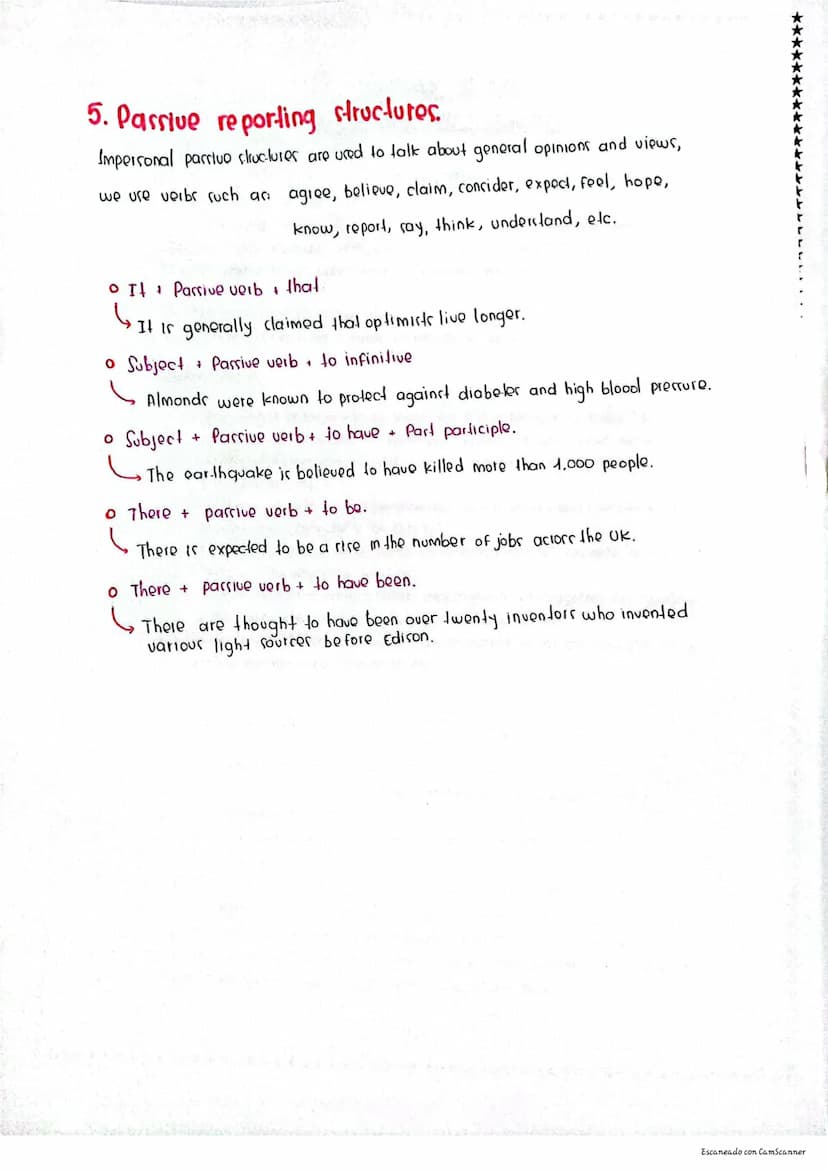 5. Passive reporting structures.
Impersonal passive structures are used to talk about general opinions and views,
we use verbs such as: agree, believe, claim, consider, expect, feel, hope,
know, report, say, think, understand, etc.
It + Passive verb + that
It is generally claimed that optimists live longer.
Subject + Passive verb + to infinitive
Almonds were known to protect against diabetes and high blood pressure.
Subject + Passive verb + to have + Past participle.
The earthquake is believed to have killed more than 1,000 people.
There + passive verb + to be.
There is expected to be a rise in the number of jobs across the UK.
There + passive verb + to have been.
There are thought to have been over twenty inventors who invented
various light sources before Edison.
Escaneado con CamScanner